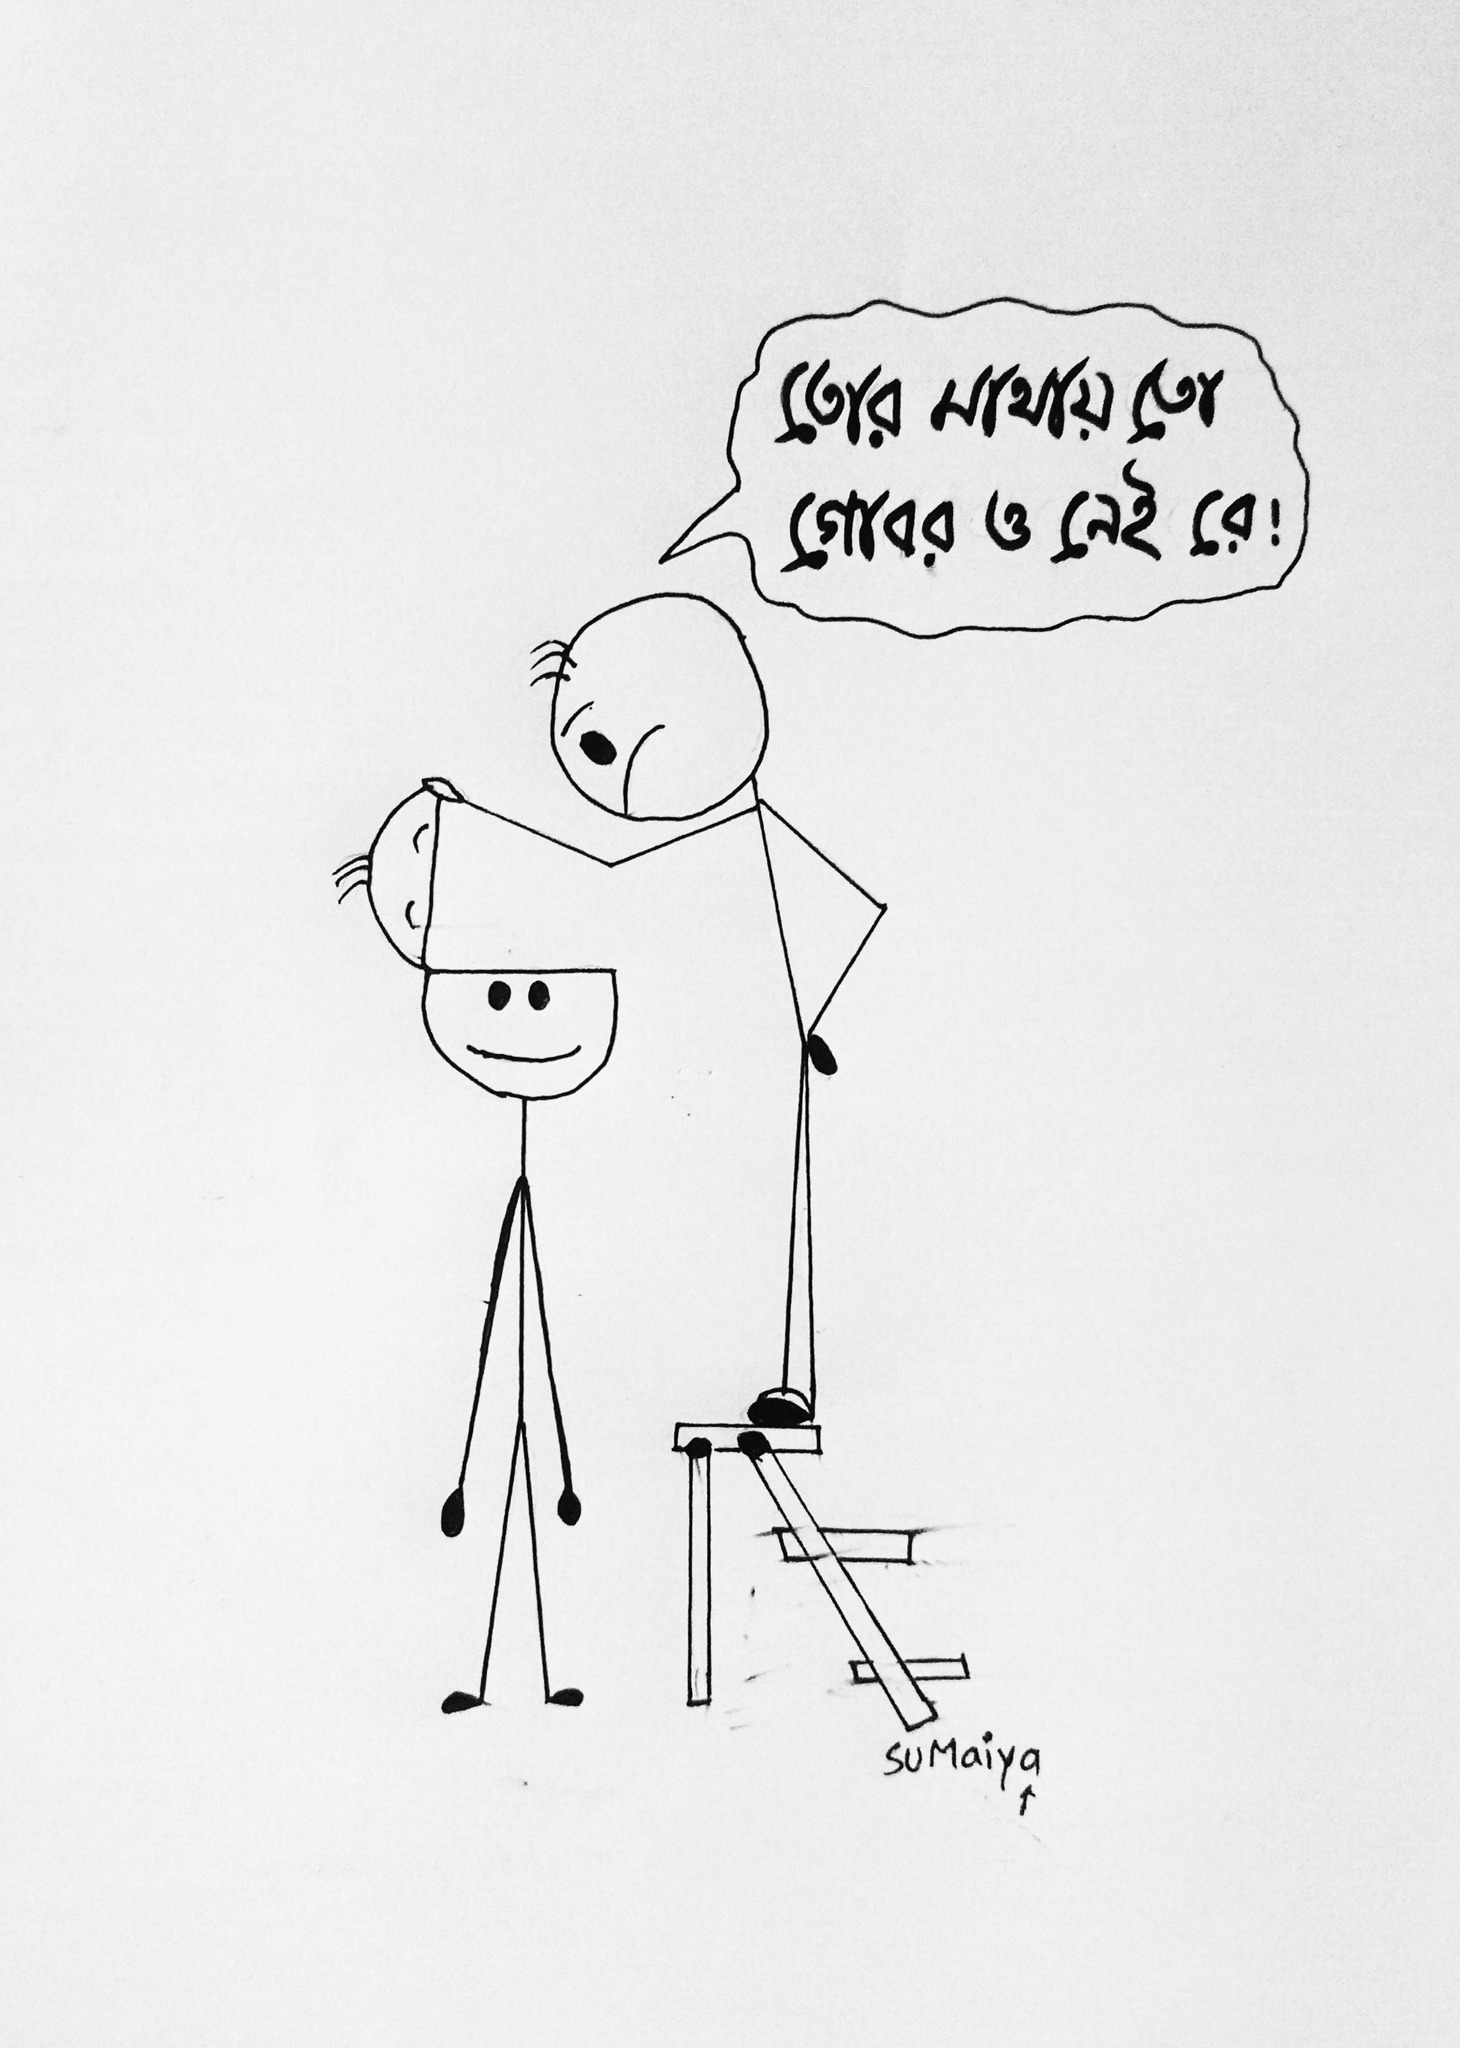 তোর মাথায় তো
গোবর ও নেই রে!
suMaiya